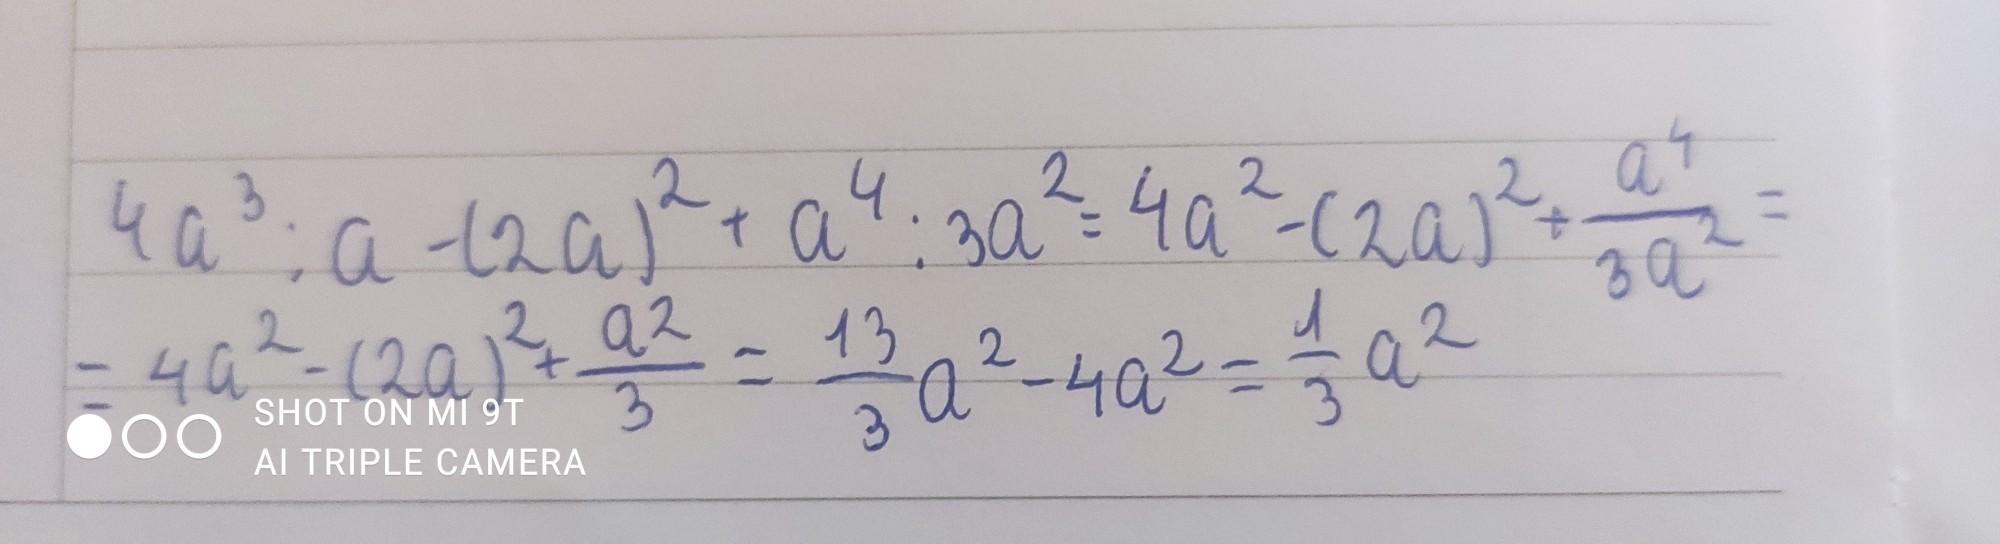 4a³ : a - (2a)² + a⁴ : 3a² = 4a² - (2a)² + a⁴/3a² =
= 4a² - (2a)² + a2/3 = 13/3 a² - 4a² = 1/3 a²
SHOT ON MI 9T
AI TRIPLE CAMERA